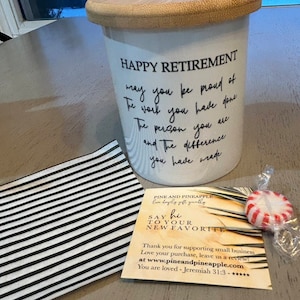 HAPPY RETIREMENT
may you be proud of
the work you have done
the person you are
and the difference
you have made
PINE AND PINEAPPLE
SAY hi
TO YOUR
NEW FAVORITE
Thank you for supporting small business
Love your purchase, leave us a review
at www.pineandpineapple.com
You are loved - Jeremiah 31:3 -